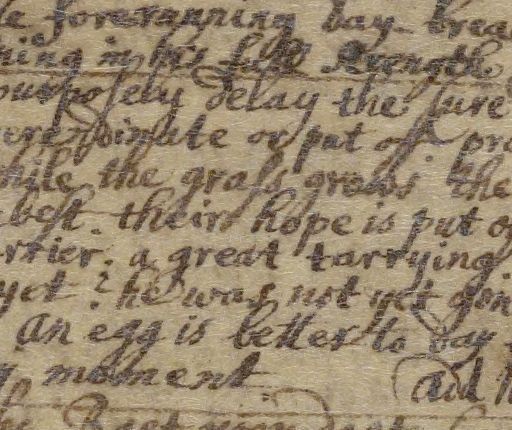 forerunning day brea
in his full strength
purposely delay the sure
or put of pro
hile the grass grows the
best. their hope is put of
rrier. a great tarrying
yet? he was not yet gon
an egg is better to day
moment and h